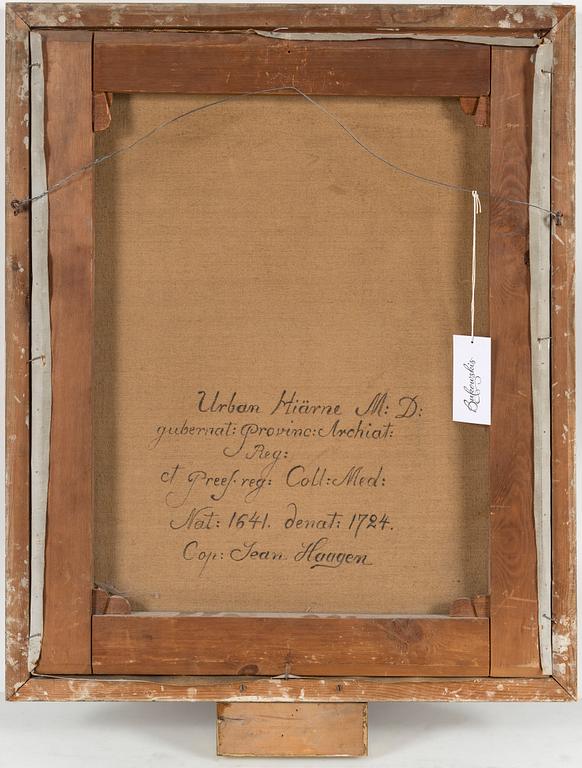 Bukowskis
Urban Hiärne M: D:
gubernat: Provinc: Archiat:
Reg:
et Præs. reg: Coll: Med:
Nat: 1641. denat: 1724.
Cop: Jean Haagen